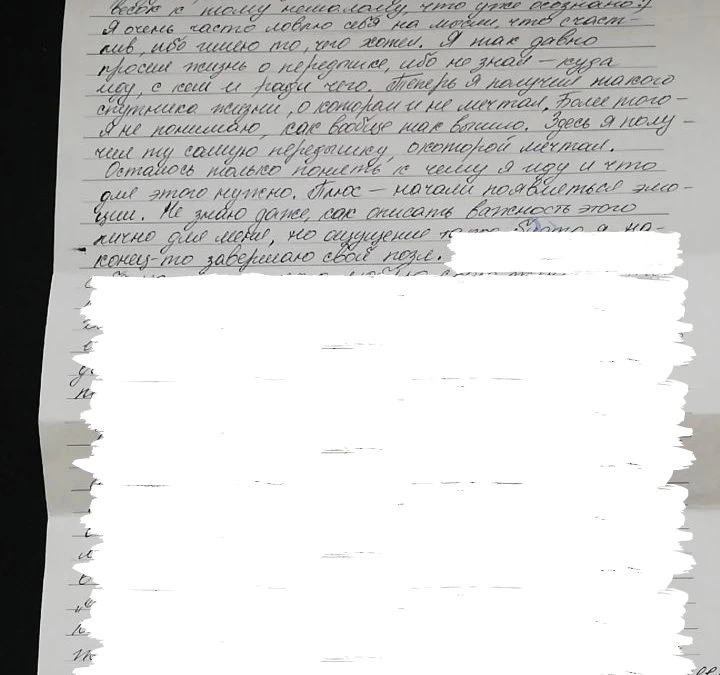 весок к тому немалому, что уже осознано:)
Я очень часто ловлю себя на мысли, что счаст-
лив, ибо имею то, что хотел. Я так давно
просил жизнь о передышке, ибо не знал – куда
иду, с кем и ради чего. Теперь я получил такого
спутника жизни, о котором и не мечтал. Более того –
я не понимаю, как вообще так вышло. Здесь я полу-
чил ту самую передышку, о которой мечтал.
Осталось только понять, к чему я иду и что
для этого нужно. Плюс – начали появляться эмо-
ции. Не знаю даже, как описать важность этого
лично для меня, но ощущение я на-
конец-то завершаю свой пазл.